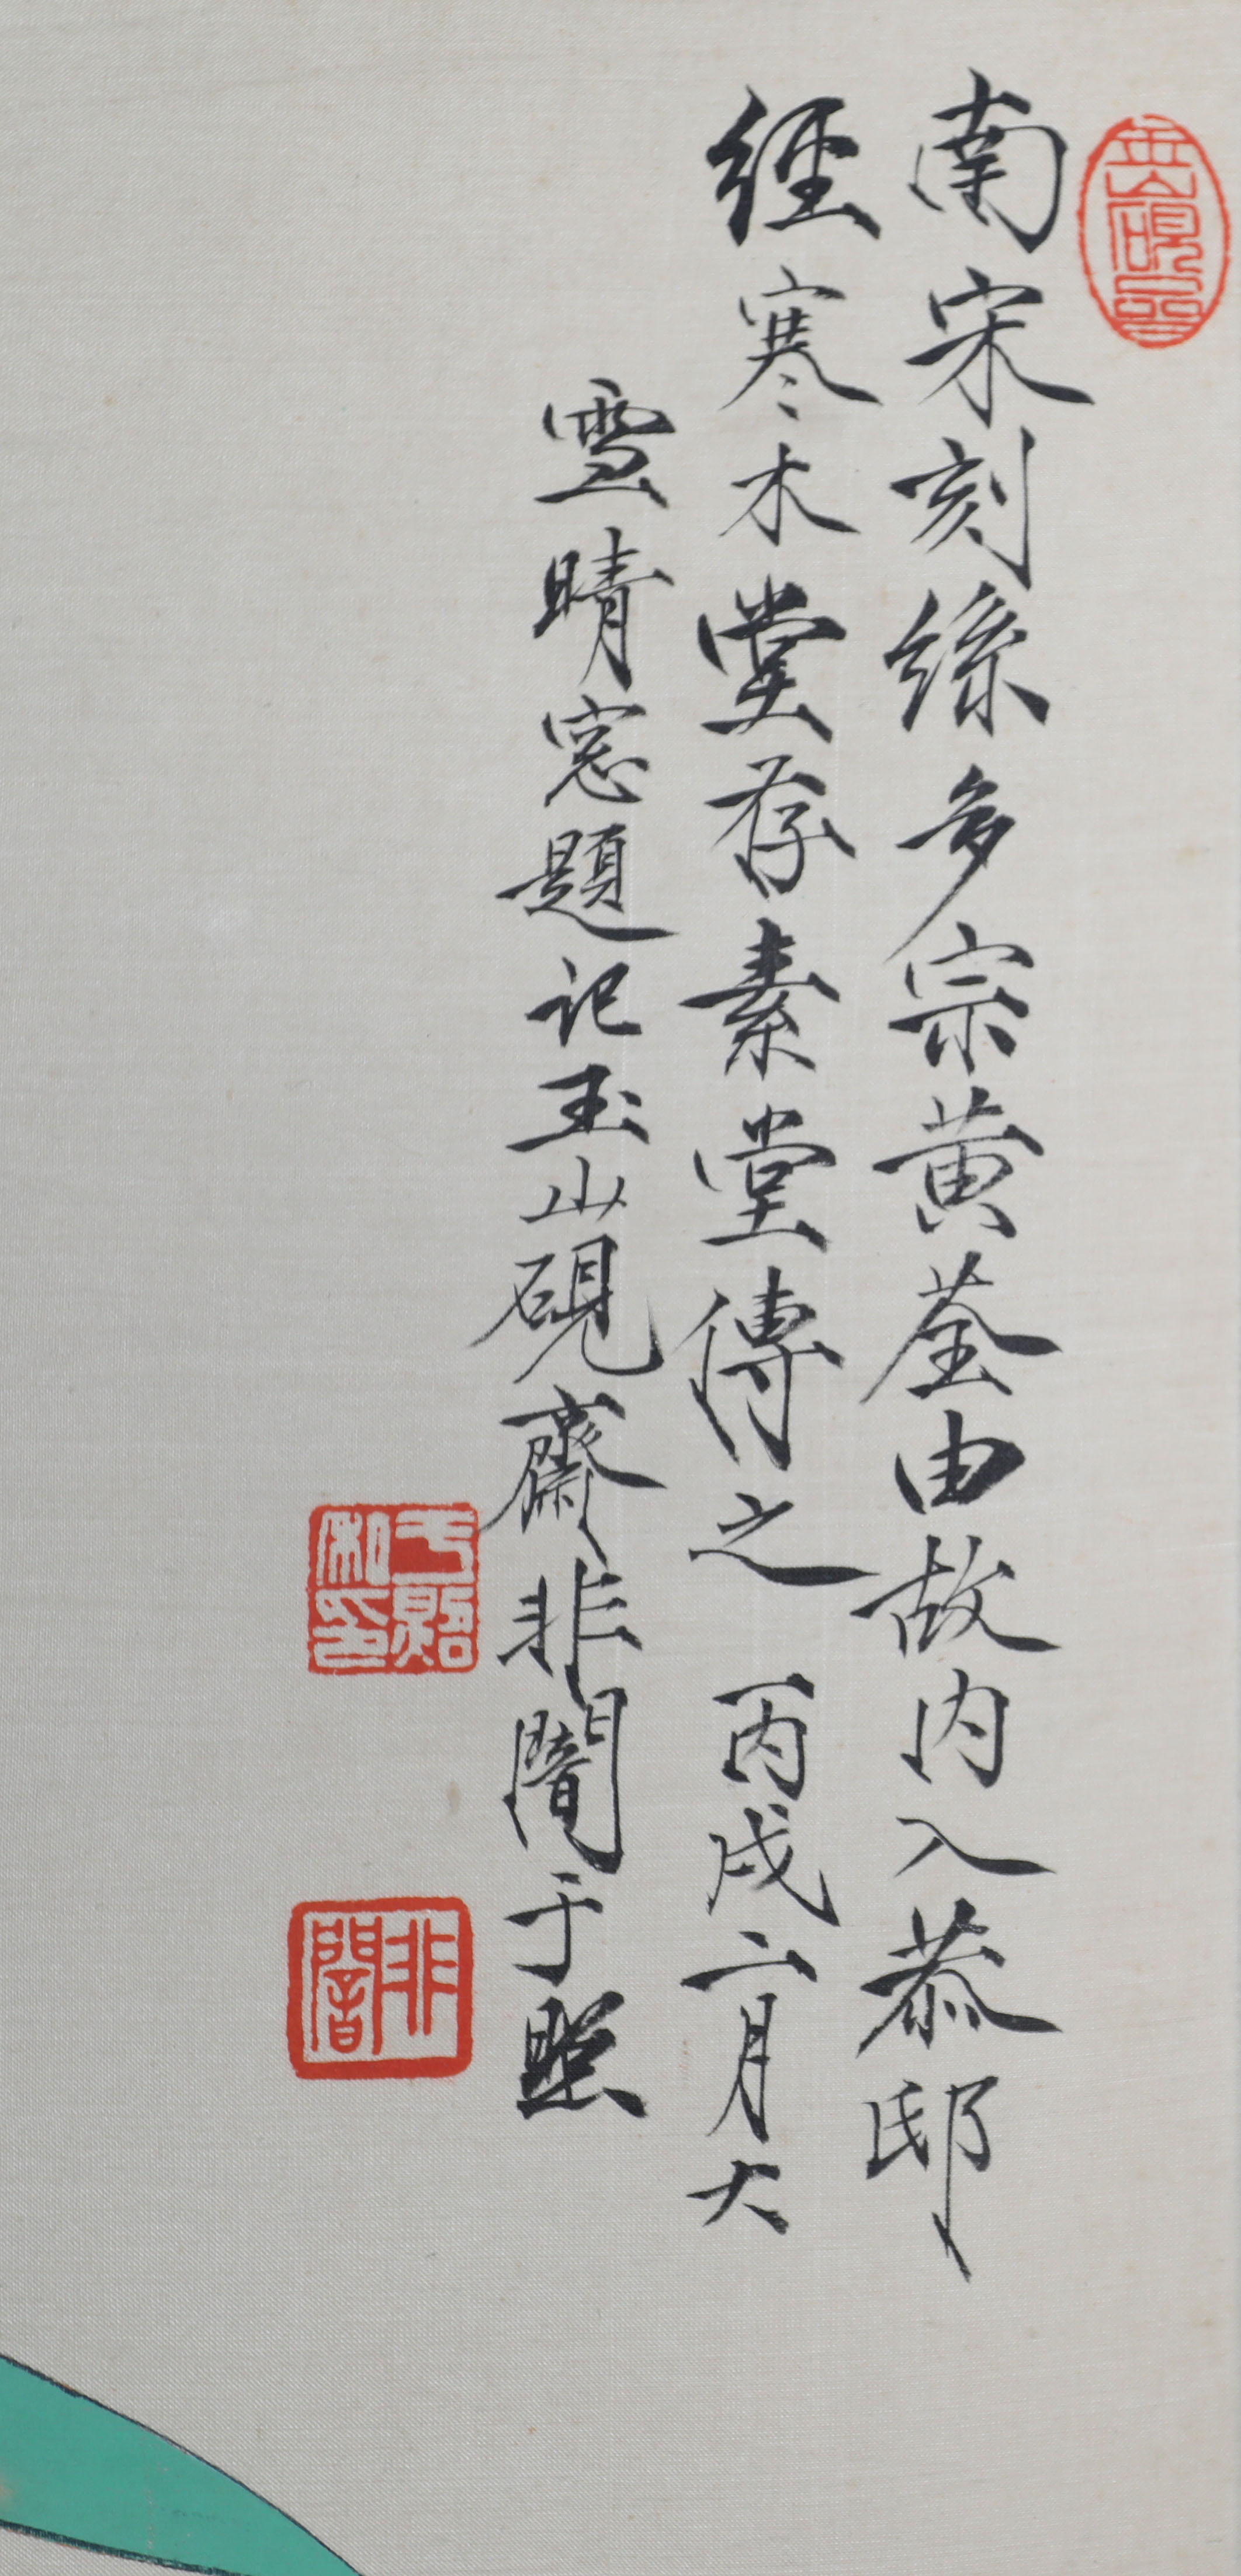 南宋刻絲多宗黃荃由故內入恭邸
經寒木堂存素堂傳之 丙戌二月大
雪晴窓題記玉山硯齋非闇于照
于照私印
非闇